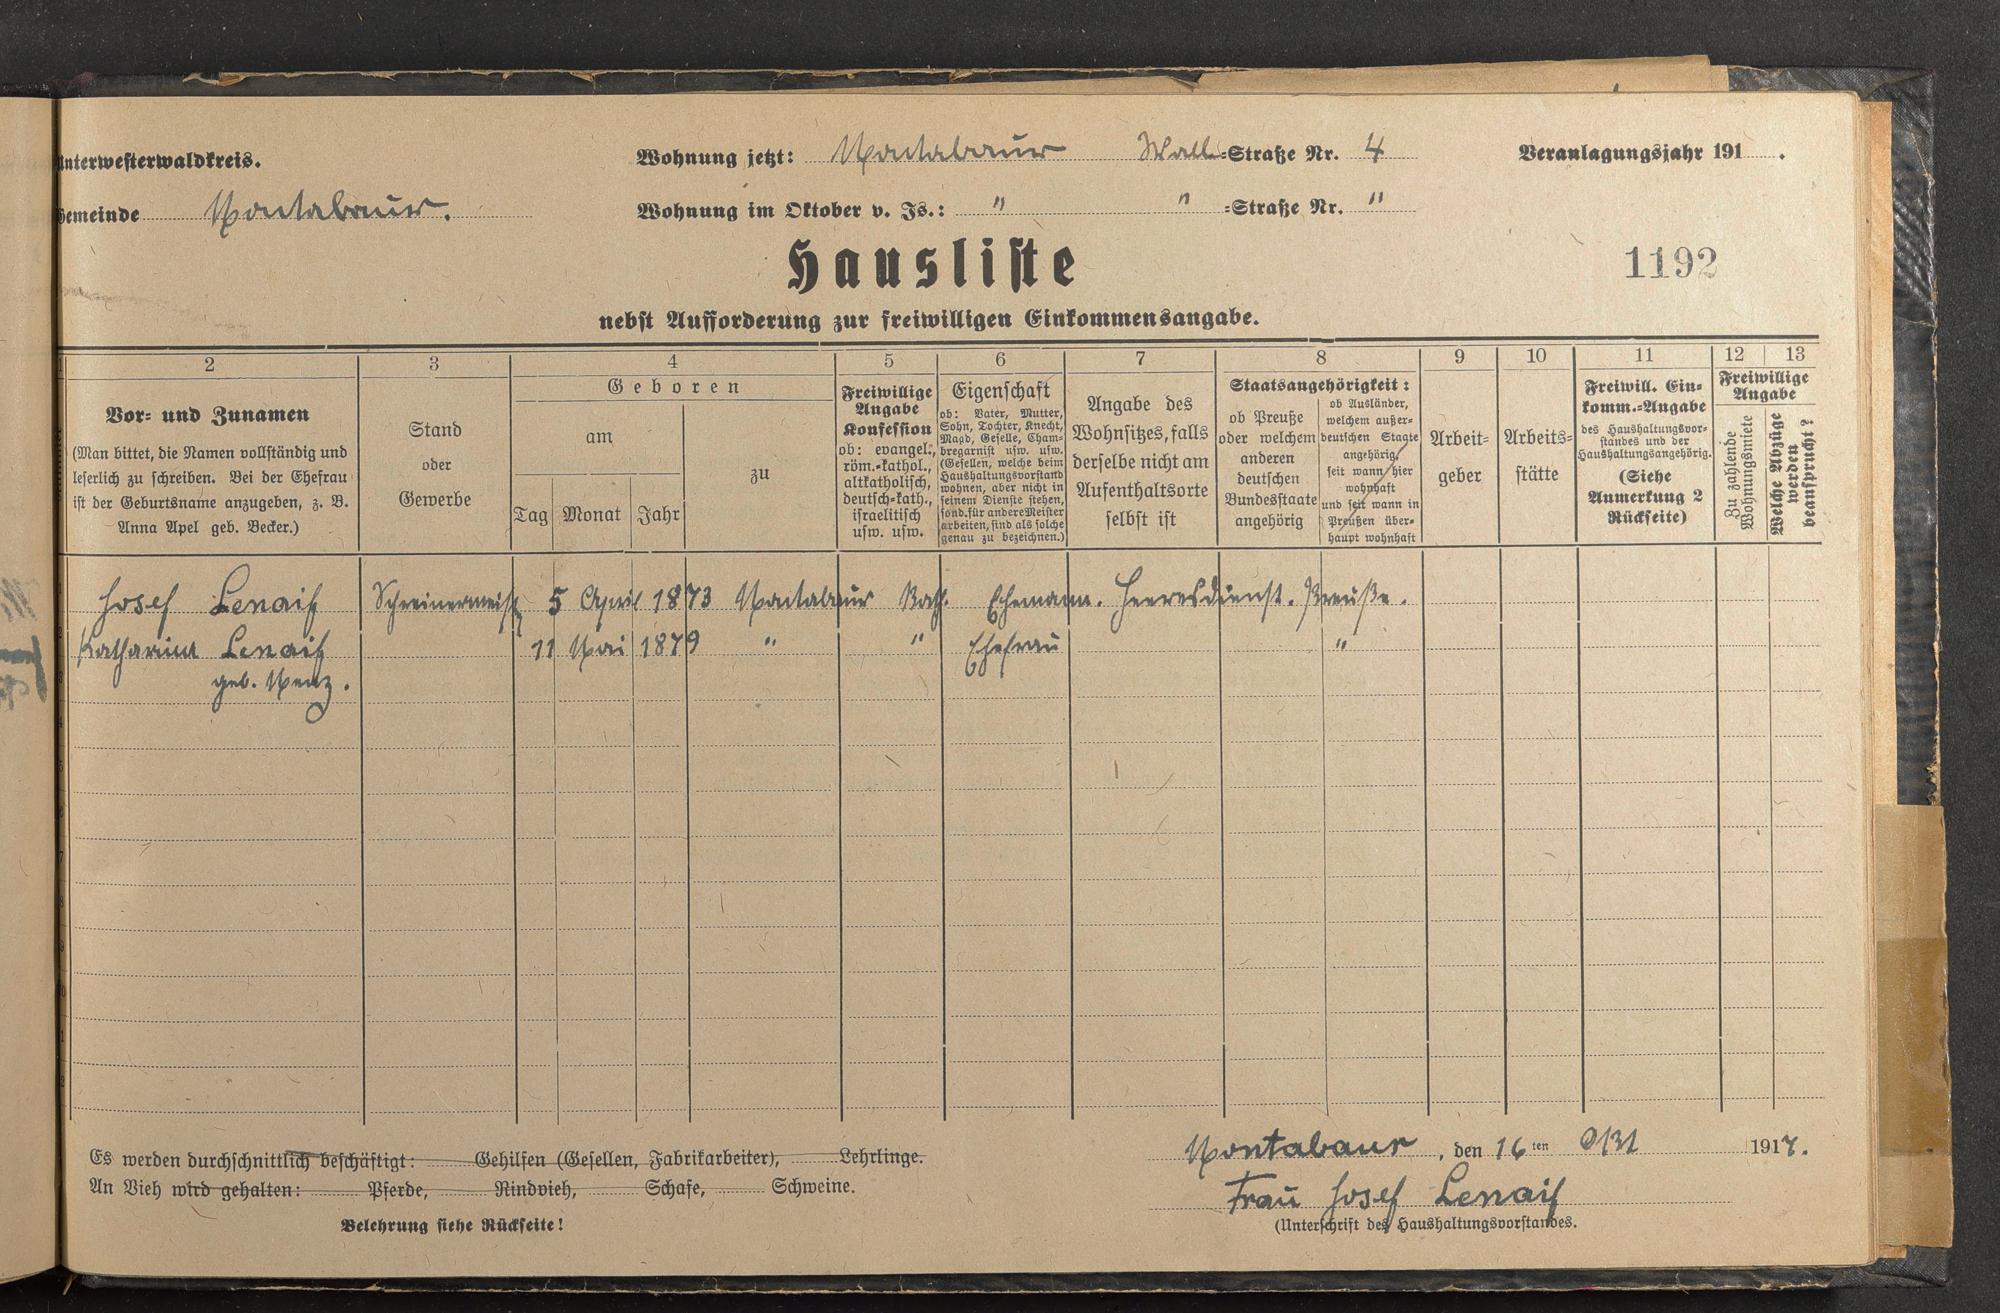 Unterwesterwaldkreis.
Gemeinde Montabaur.
Wohnung jetzt: Montabaur Wall-Straße Nr. 4
Wohnung im Oktober v. Js.: " " -Straße Nr. "
Veranlagungsjahr 191 .
Hausliste
1192
nebst Aufforderung zur freiwilligen Einkommensangabe.
1 2 3 4 5 6 7 8 9 10 11 12 13
Vor- und Zunamen
(Man bittet, die Namen vollständig und
leserlich zu schreiben. Bei der Ehefrau
ist der Geburtsname anzugeben, z. B.
Anna Apel geb. Becker.)
Stand
oder
Gewerbe
Geboren
am
Tag Monat Jahr
zu
Freiwillige
Angabe
Konfession
ob: evangel.,
röm.-kathol.,
altkatholisch,
deutsch-kath.,
israelitisch
usw. usw.
Eigenschaft
ob: Vater, Mutter,
Sohn, Tochter, Knecht,
Magd, Geselle, Cham-
bregarnist usw. usw.
(Gesellen, welche beim
Haushaltungsvorstand
wohnen, aber nicht in
seinem Dienste stehen,
sond. für andere Meister
arbeiten, sind als solche
genau zu bezeichnen.)
Angabe des
Wohnsitzes, falls
derselbe nicht am
Aufenthaltsorte
selbst ist
Staatsangehörigkeit:
ob Preuße
oder welchem
anderen
deutschen
Bundesstaate
angehörig
ob Ausländer,
welchem außer-
deutschen Staate
angehörig,
seit wann hier
wohnhaft
und seit wann in
Preußen über-
haupt wohnhaft
Arbeit-
geber
Arbeits-
stätte
Freiwill. Ein-
komm.-Angabe
des Haushaltungsvor-
standes und der
Haushaltungsangehörig.
(Siehe
Anmerkung 2
Rückseite)
Freiwillige
Angabe
Zu zahlende
Wohnungsmiete
Welche Abzüge
werden
beansprucht?
Josef Lenaif Schreinermeist 5 April 1873 Montabaur Kath. Ehemann. Heeresdienst. Preuße.
Katharina Lenaif 11 Mai 1879 " " Ehefrau "
geb. Menz.
Es werden durchschnittlich beschäftigt: Gehilfen (Gesellen, Fabrikarbeiter), Lehrlinge.
An Vieh wird gehalten: Pferde, Rindvieh, Schafe, Schweine.
Belehrung siehe Rückseite!
Montabaur, den 16ten Okt 1917.
Frau Josef Lenaif
(Unterschrift des Haushaltungsvorstandes.